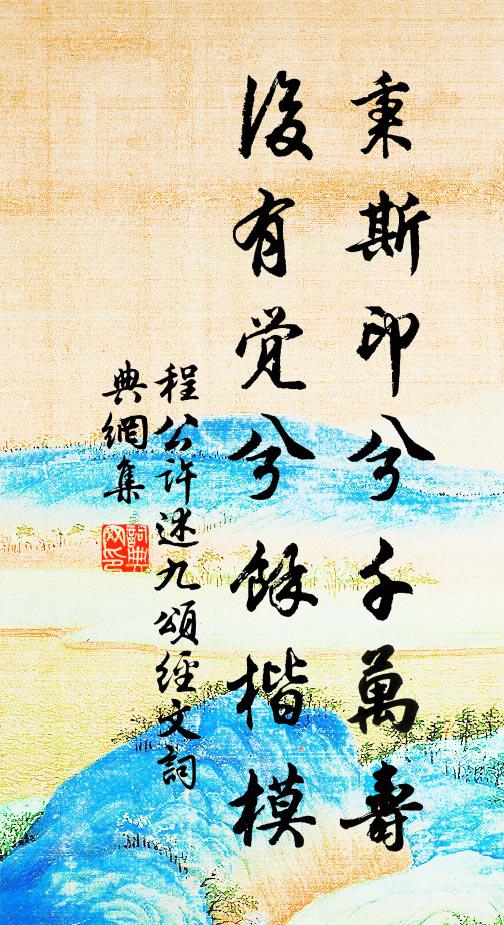 秉斯印兮千萬壽
後有覺兮餘楷模
程公許述九頌經文詞
典網集
詞典網印